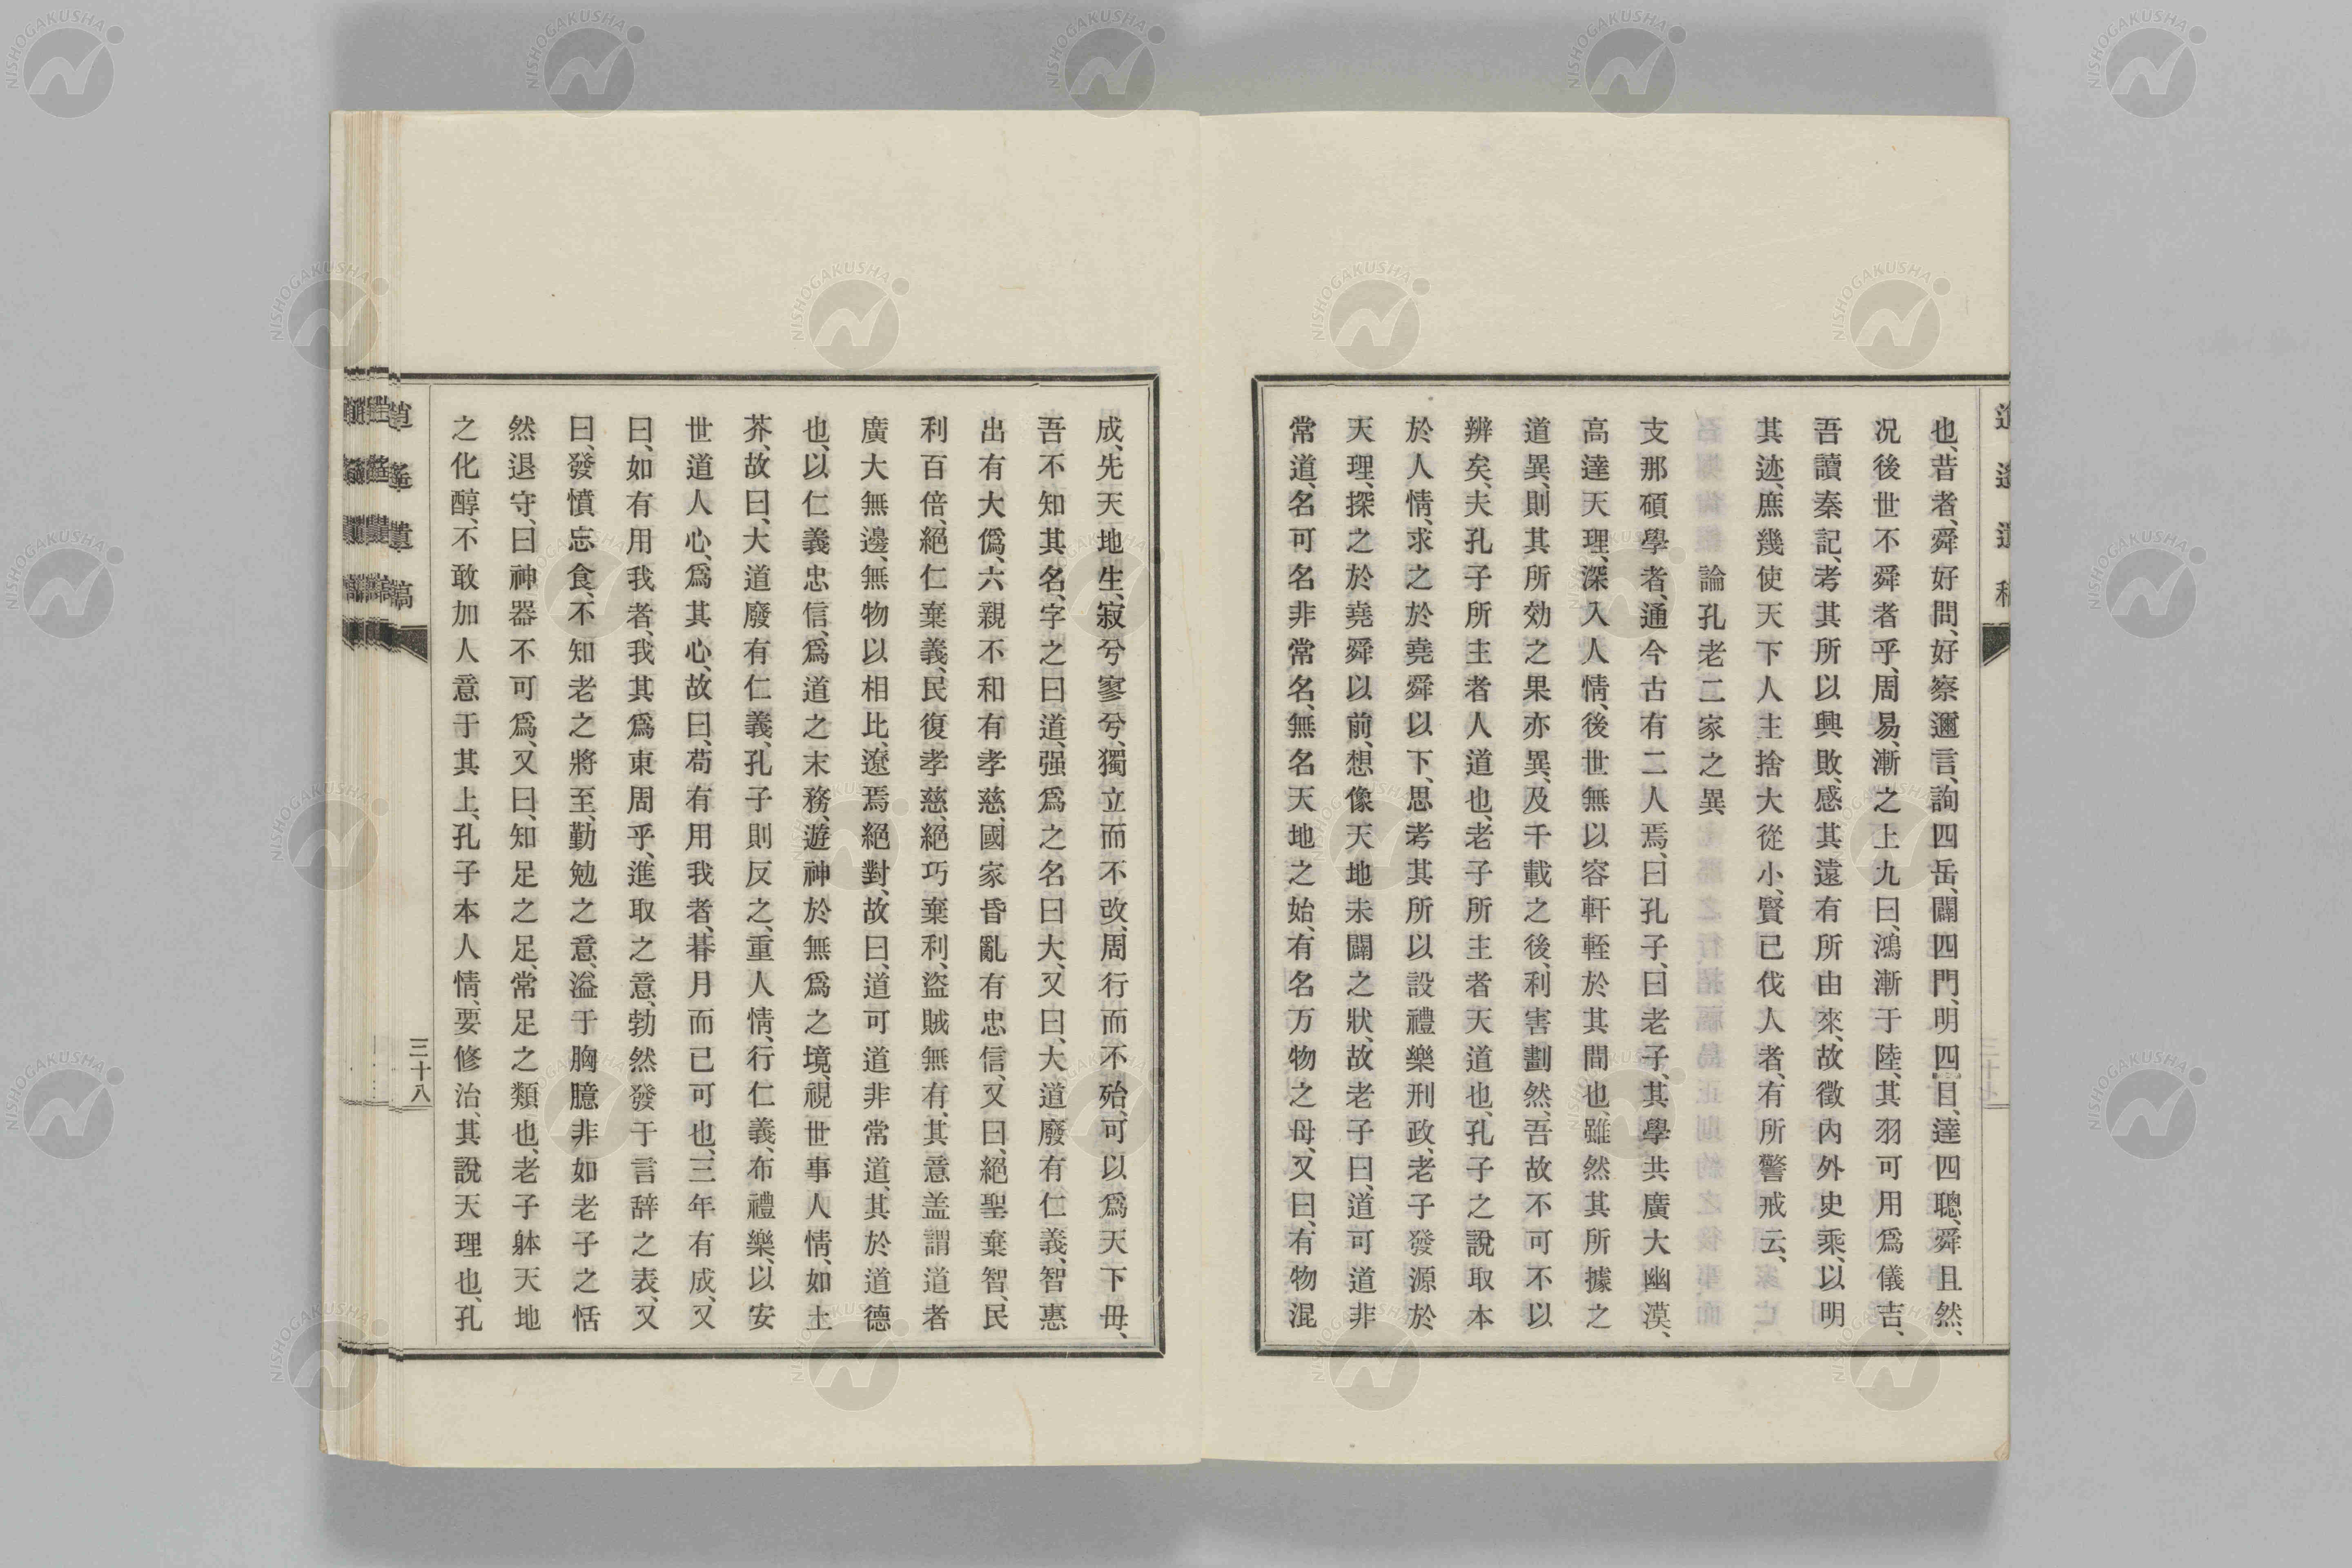 也、昔者、舜好問、好察邇言、詢四岳、闢四門、明四目、達四聰、舜且然、
况後世不舜者乎、周易、漸之上九曰、鴻漸于陸、其羽可用爲儀吉、
吾讀秦記、考其所以興敗、感其遠有所由來、故徵內外史乘、以明
其迹、庶幾使天下人主捨大從小、賢已伐人者、有所警戒云、
論孔老二家之異
支那碩學者、通今古有二人焉、曰孔子、曰老子、其學共廣大幽漠、
高達天理、深入人情、後世無以容軒輊於其間也、雖然其所據之
道異、則其所効之果亦異、及千載之後、利害劃然、吾故不可不以
辨矣、夫孔子所主者人道也、老子所主者天道也、孔子之說取本
於人情、求之於堯舜以下、思考其所以設禮樂刑政、老子發源於
天理、探之於堯舜以前、想像天地未闢之狀、故老子曰、道可道非
常道、名可名非常名、無名天地之始、有名万物之母、又曰、有物混
成、先天地生、寂兮寥兮、獨立而不改、周行而不殆、可以爲天下母、
吾不知其名、字之曰道、强爲之名曰大、又曰、大道廢有仁義、智惠
出、有大僞、六親不和有孝慈、國家昏亂有忠信、又曰、絕聖棄智、民
利百倍、絕仁棄義、民復孝慈、絕巧棄利、盜賊無有、其意盖謂道者
廣大無邊、無物以相比、遼焉絕對、故曰、道可道非常道、其於道德
也、以仁義忠信、爲道之末務、遊神於無爲之境、視世事人情、如土
芥、故曰、大道廢有仁義、孔子則反之、重人情、行仁義、布禮樂、以安
世道人心、爲其心、故曰、苟有用我者、朞月而已可也、三年有成、又
曰、如有用我者、我其爲東周乎、進取之意、勃然發于言辭之表、又
曰、發憤忘食、不知老之將至、勤勉之意、溢于胸臆、非如老子之恬
然退守、曰神器不可爲、又曰、知足之足、常足之類也、老子躰天地
之化醇、不敢加人意于其上、孔子本人情、要修治、其說天理也、孔
三十八
遺稿